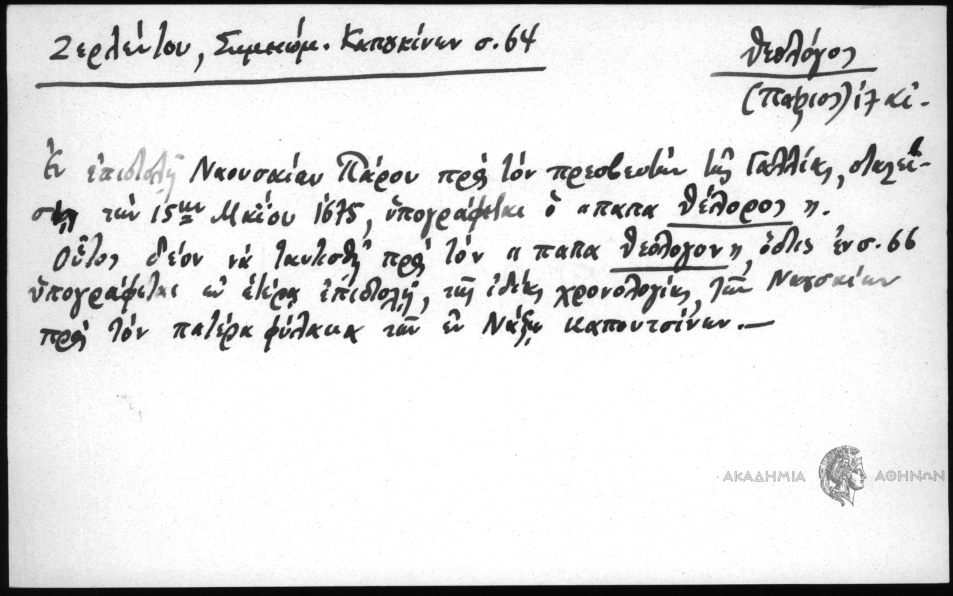 Ζερλέντου, Σημείωμ. Καπουκίνων σ. 64
Θεολόγος
(Πάριος) 17 αἰ.
Ἐν ἐπιστολῇ Ναουσαίων Πάρου πρὸς τὸν πρεσβευτὴν τῆς Γαλλίας, σταλεί-
σῃ τὴν 15ην Μαΐου 1675, ὑπογράφεται ὁ "παπα Θέλορος".
Οὗτος δέον νὰ ταυτισθῇ πρὸς τὸν "παπα Θεολογον", ὅστις ἐν σ. 66
ὑπογράφεται ἐν ἑτέρᾳ ἐπιστολῇ, τῆς ἰδίας χρονολογίας, τῶν Ναουσαίων
πρὸς τὸν πατέρα φύλακα τῶν ἐν Νάξῳ καπουτσίνων.—
ΑΚΑΔΗΜΙΑ ΑΘΗΝΩΝ